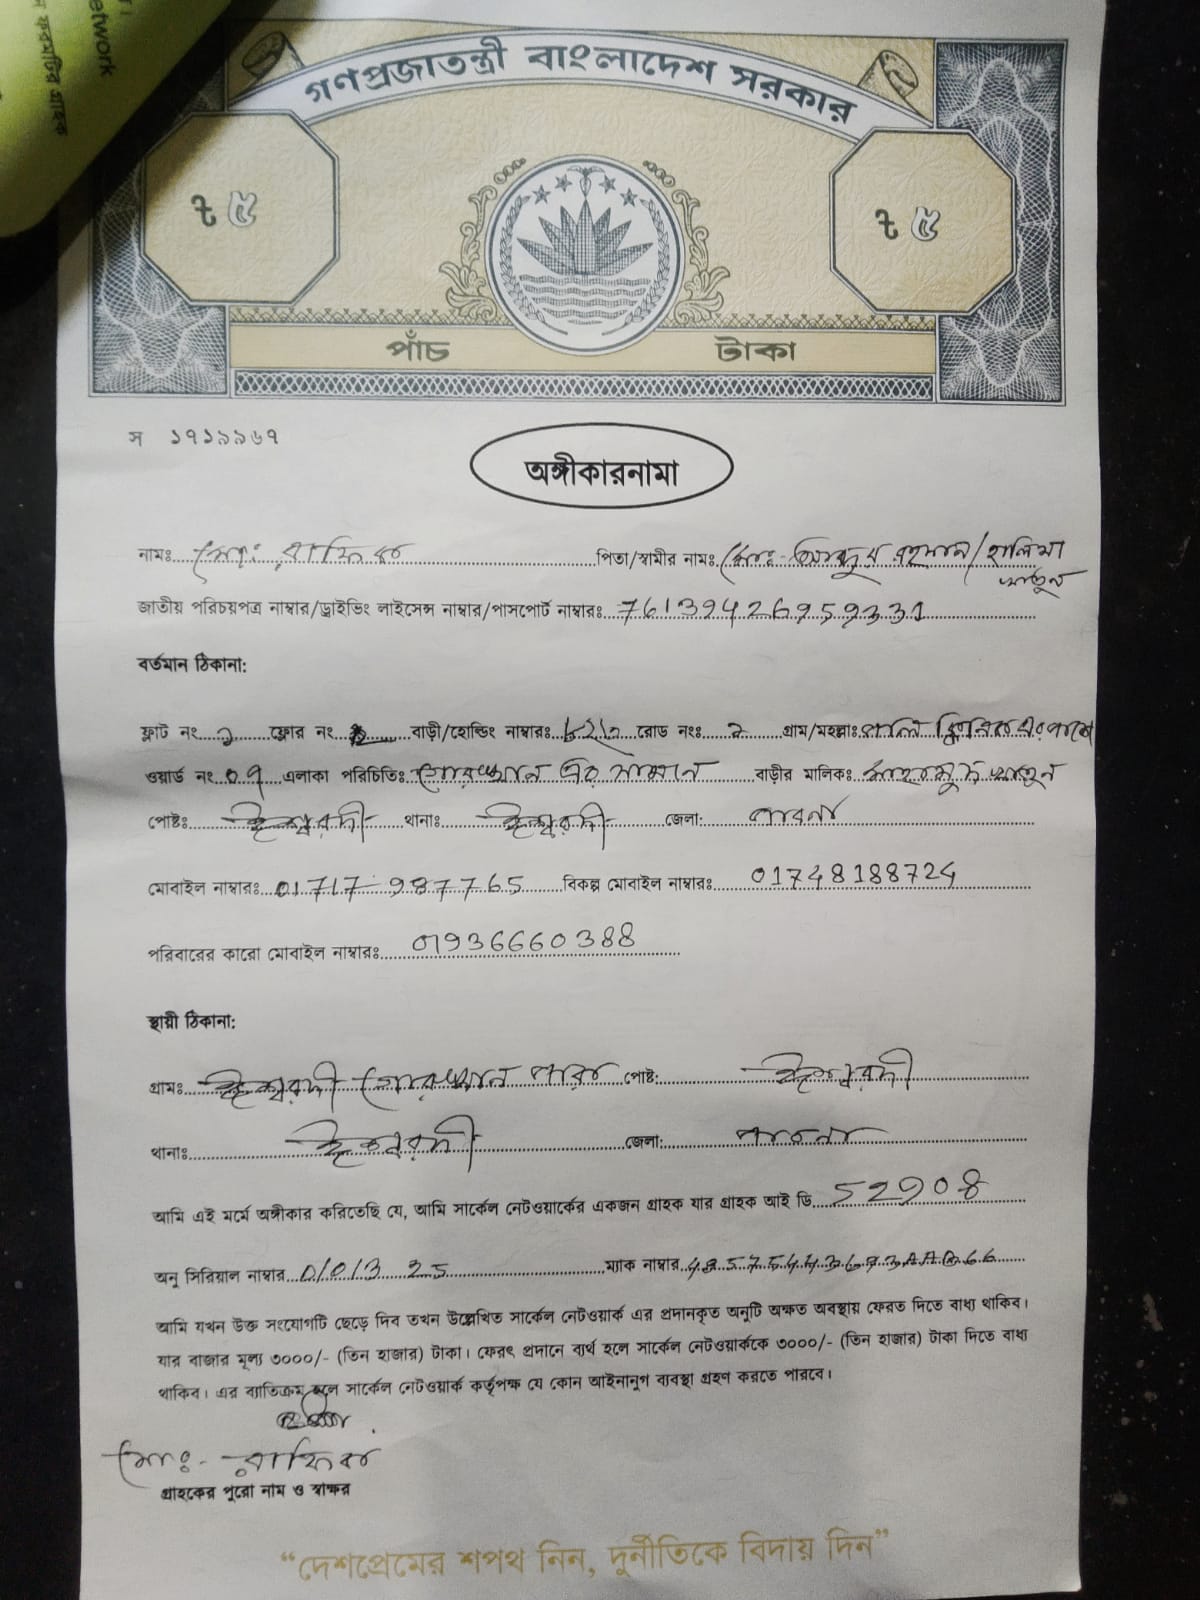 etwork
গণপ্রজাতন্ত্রী বাংলাদেশ সরকার
৳ ৫ ৳ ৫
পাঁচ টাকা
স ১৭১৯৯৬৭
অঙ্গীকারনামা
নামঃ মোঃ রাফিক পিতা/স্বামীর নামঃ মোঃ- রহমান/হালিমা
খাতুন
জাতীয় পরিচয়পত্র নাম্বার/ড্রাইভিং লাইসেন্স নাম্বার/পাসপোর্ট নাম্বারঃ
বর্তমান ঠিকানা:
ফ্লাট নং ১ ফ্লোর নং বাড়ী/হোল্ডিং নাম্বারঃ রোড নংঃ গ্রাম/মহল্লাঃ এর পাশে
ওয়ার্ড নং ০৭ এলাকা পরিচিতিঃ গোরস্থান এর সামনে বাড়ীর মালিকঃ খাতুন
পোষ্টঃ ঈশ্বরদী থানাঃ ঈশ্বরদী জেলা: পাবনা
মোবাইল নাম্বারঃ 01717-987765 বিকল্প মোবাইল নাম্বারঃ 01748188724
পরিবারের কারো মোবাইল নাম্বারঃ 01936660388
স্থায়ী ঠিকানা:
গ্রামঃ ঈশ্বরদী গোরস্থান পাড়া পোষ্ট: ঈশ্বরদী
থানাঃ ঈশ্বরদী জেলা: পাবনা
আমি এই মর্মে অঙ্গীকার করিতেছি যে, আমি সার্কেল নেটওয়ার্কের একজন গ্রাহক যার গ্রাহক আই ডি
অনু সিরিয়াল নাম্বার ম্যাক নাম্বার
আমি যখন উক্ত সংযোগটি ছেড়ে দিব তখন উল্লেখিত সার্কেল নেটওয়ার্ক এর প্রদানকৃত অনুটি অক্ষত অবস্থায় ফেরত দিতে বাধ্য থাকিব।
যার বাজার মূল্য ৩০০০/- (তিন হাজার) টাকা। ফেরৎ প্রদানে ব্যর্থ হলে সার্কেল নেটওয়ার্ককে ৩০০০/- (তিন হাজার) টাকা দিতে বাধ্য
থাকিব। এর ব্যাতিক্রম হলে সার্কেল নেটওয়ার্ক কর্তৃপক্ষ যে কোন আইনানুগ ব্যবস্থা গ্রহণ করতে পারবে।
মোঃ- রাফিক
গ্রাহকের পুরো নাম ও স্বাক্ষর
“দেশপ্রেমের শপথ নিন, দুর্নীতিকে বিদায় দিন”